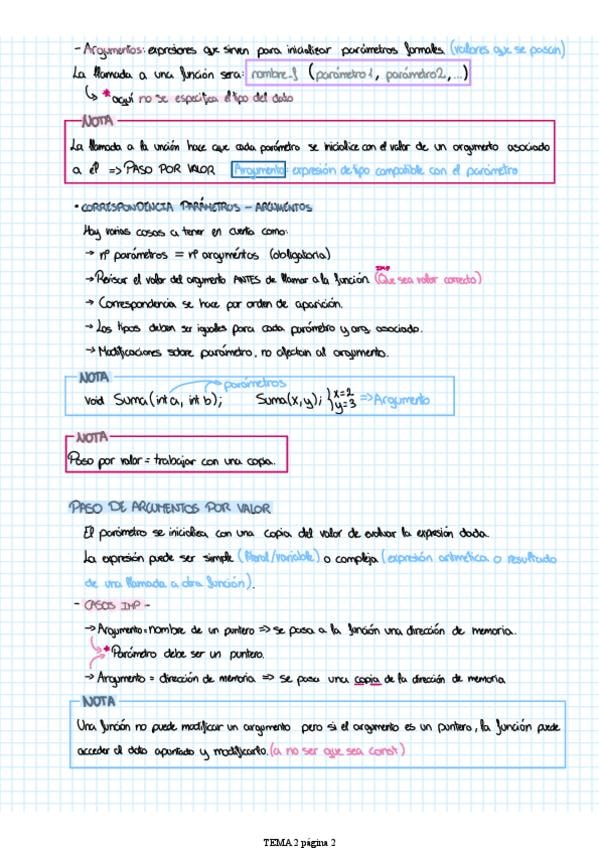 - Argumentos: expresiones que sirven para inicializar parámetros formales (valores que se pasan)
La llamada a una función sera: nombre_f (parámetro1, parámetro2,...)
↳ * aquí no se especifica el tipo del dato
NOTA
La llamada a la unción hace que cada parámetro se inicialice con el valor de un argumento asociado
a él => PASO POR VALOR Argumento: expresión de tipo compatible con el parámetro
• CORRESPONDENCIA PARÁMETROS - ARGUMENTOS
Hay varias cosas a tener en cuenta como:
→ nº parámetros = nº arguméntos (obligatoria)
→ Revisar el valor del argumento ANTES de llamar a la función IMP (Que sea valor correcto)
→ Correspondencia se hace por orden de aparición.
→ Los tipos deben ser iguales para cada parámetro y arg. asociado.
→ Modificaciones sobre parámetro, no afectan al argumento.
NOTA
parámetros
void Suma(int a, int b); Suma(x,y); } x=2 y=3 => Argumento
NOTA
Paso por valor = trabajar con una copia.
PASO DE ARGUMENTOS POR VALOR
El parámetro se inicializa con una copia del valor de evaluar la expresión dada.
La expresión puede ser simple (literal/variable) o compleja (expresión aritmética o resultado
de una llamada a otra función).
- CASOS IMP -
→ Argumento = nombre de un puntero => se pasa a la función una dirección de memoria.
* Parámetro debe ser un puntero.
→ Argumento = dirección de memoria => se pasa una copia de la dirección de memoria
NOTA
Una función no puede modificar un argumento pero si el argumento es un puntero, la función puede
acceder al dato apuntado y modificarlo. (a no ser que sea const)
TEMA 2 página 2